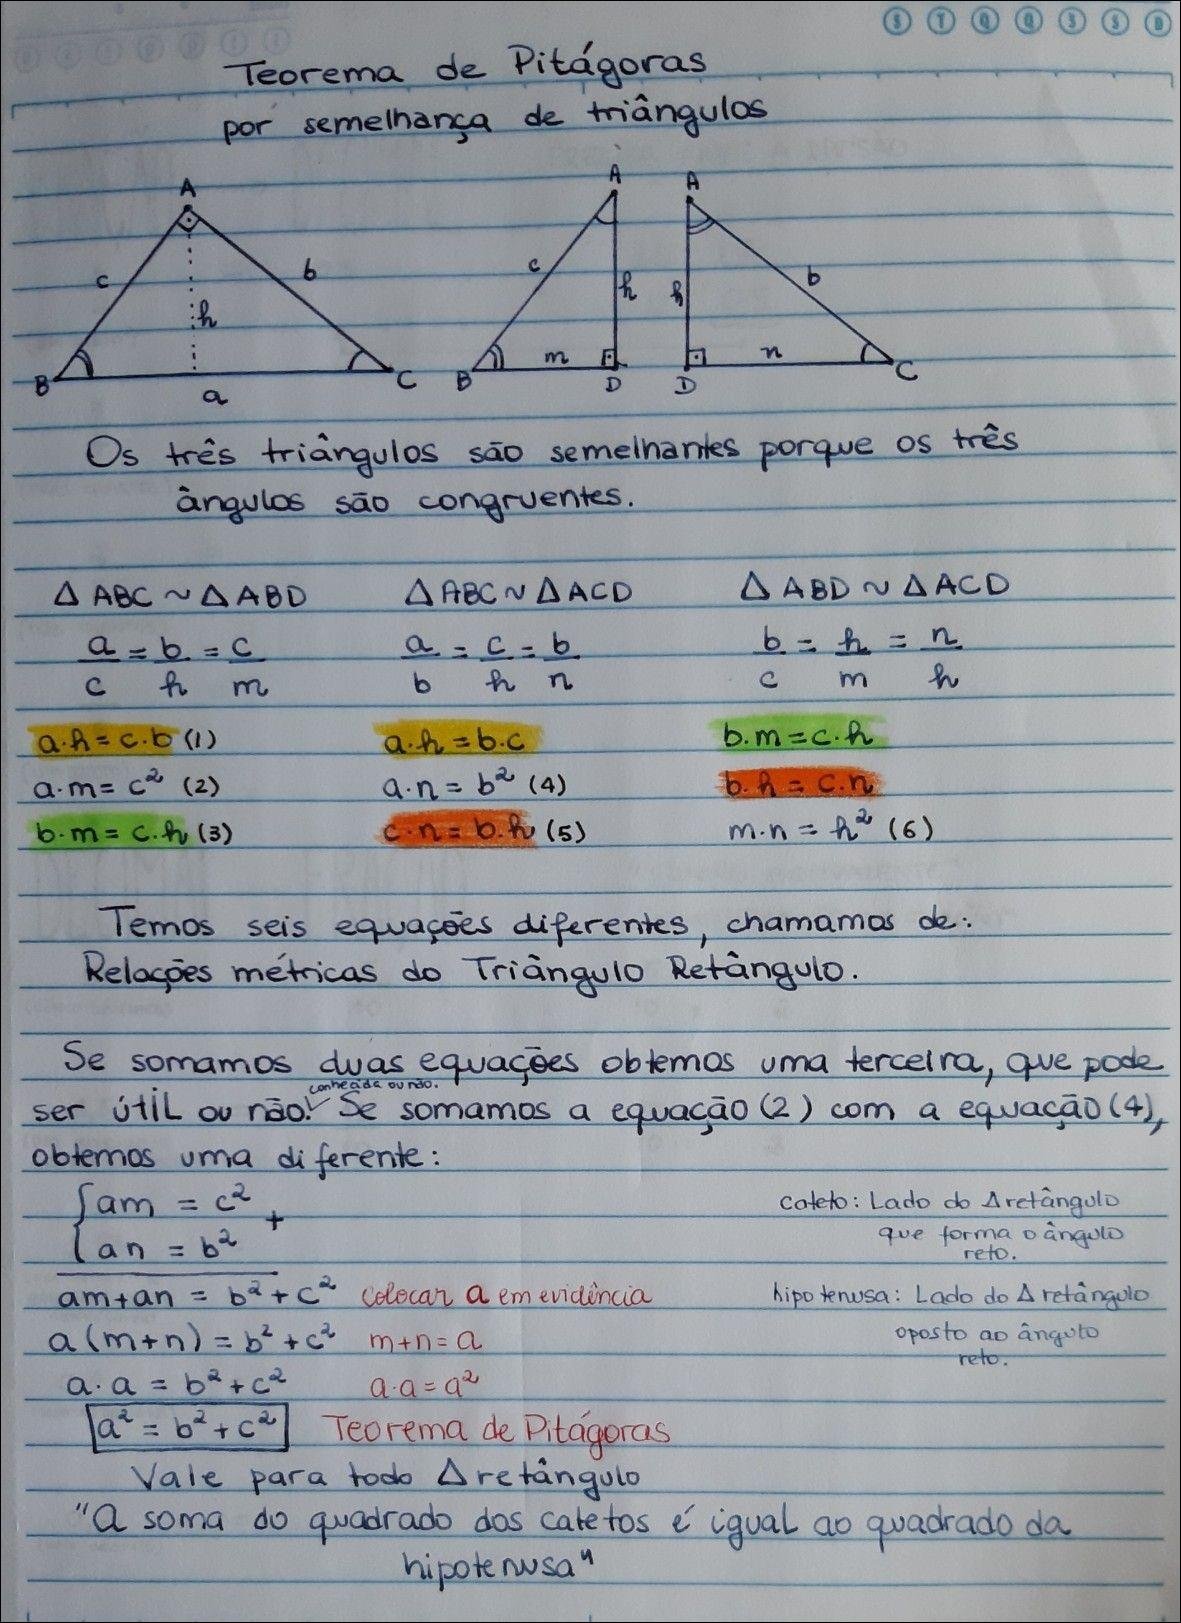 S T Q Q S S D
Teorema de Pitágoras
por semelhança de triângulos
A
c
b
h
B
a
C
A
c
h
B
m
D
A
h
b
D
n
C
Os três triângulos são semelhantes porque os três
ângulos são congruentes.
Δ ABC ~ Δ ABD
a/c = b/h = c/m
a·h = c·b (1)
a·m = c² (2)
b·m = c·h (3)
Δ ABC ~ Δ ACD
a/b = c/h = b/n
a·h = b·c
a·n = b² (4)
c·n = b·h (5)
Δ ABD ~ Δ ACD
b/c = h/m = n/h
b·m = c·h
b·h = c·n
m·n = h² (6)
Temos seis equações diferentes, chamamos de:
Relações métricas do Triângulo Retângulo.
Se somamos duas equações obtemos uma terceira, que pode
conhecida ou não.
ser útil ou não! Se somamos a equação (2) com a equação (4),
obtemos uma diferente:
{ am = c²
an = b² +
am+an = b² + c² colocar a em evidência
a(m+n) = b² + c² m+n = a
a·a = b² + c² a·a = a²
a² = b² + c² Teorema de Pitágoras
cateto: Lado do Δ retângulo
que forma o ângulo
reto.
hipotenusa: Lado do Δ retângulo
oposto ao ângulo
reto.
Vale para todo Δ retângulo
"A soma do quadrado dos catetos é igual ao quadrado da
hipotenusa"